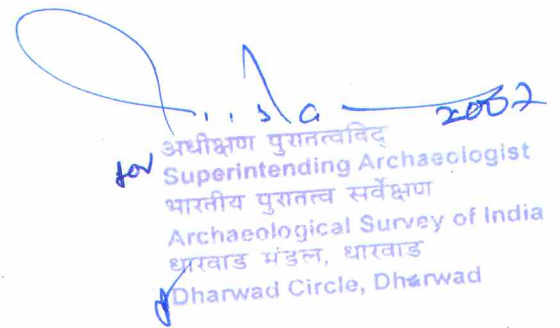 2002
for अधीक्षण पुरातत्वविद्
Superintending Archaeologist
भारतीय पुरातत्व सर्वेक्षण
Archaeological Survey of India
धारवाड मंडल, धारवाड
Dharwad Circle, Dharwad